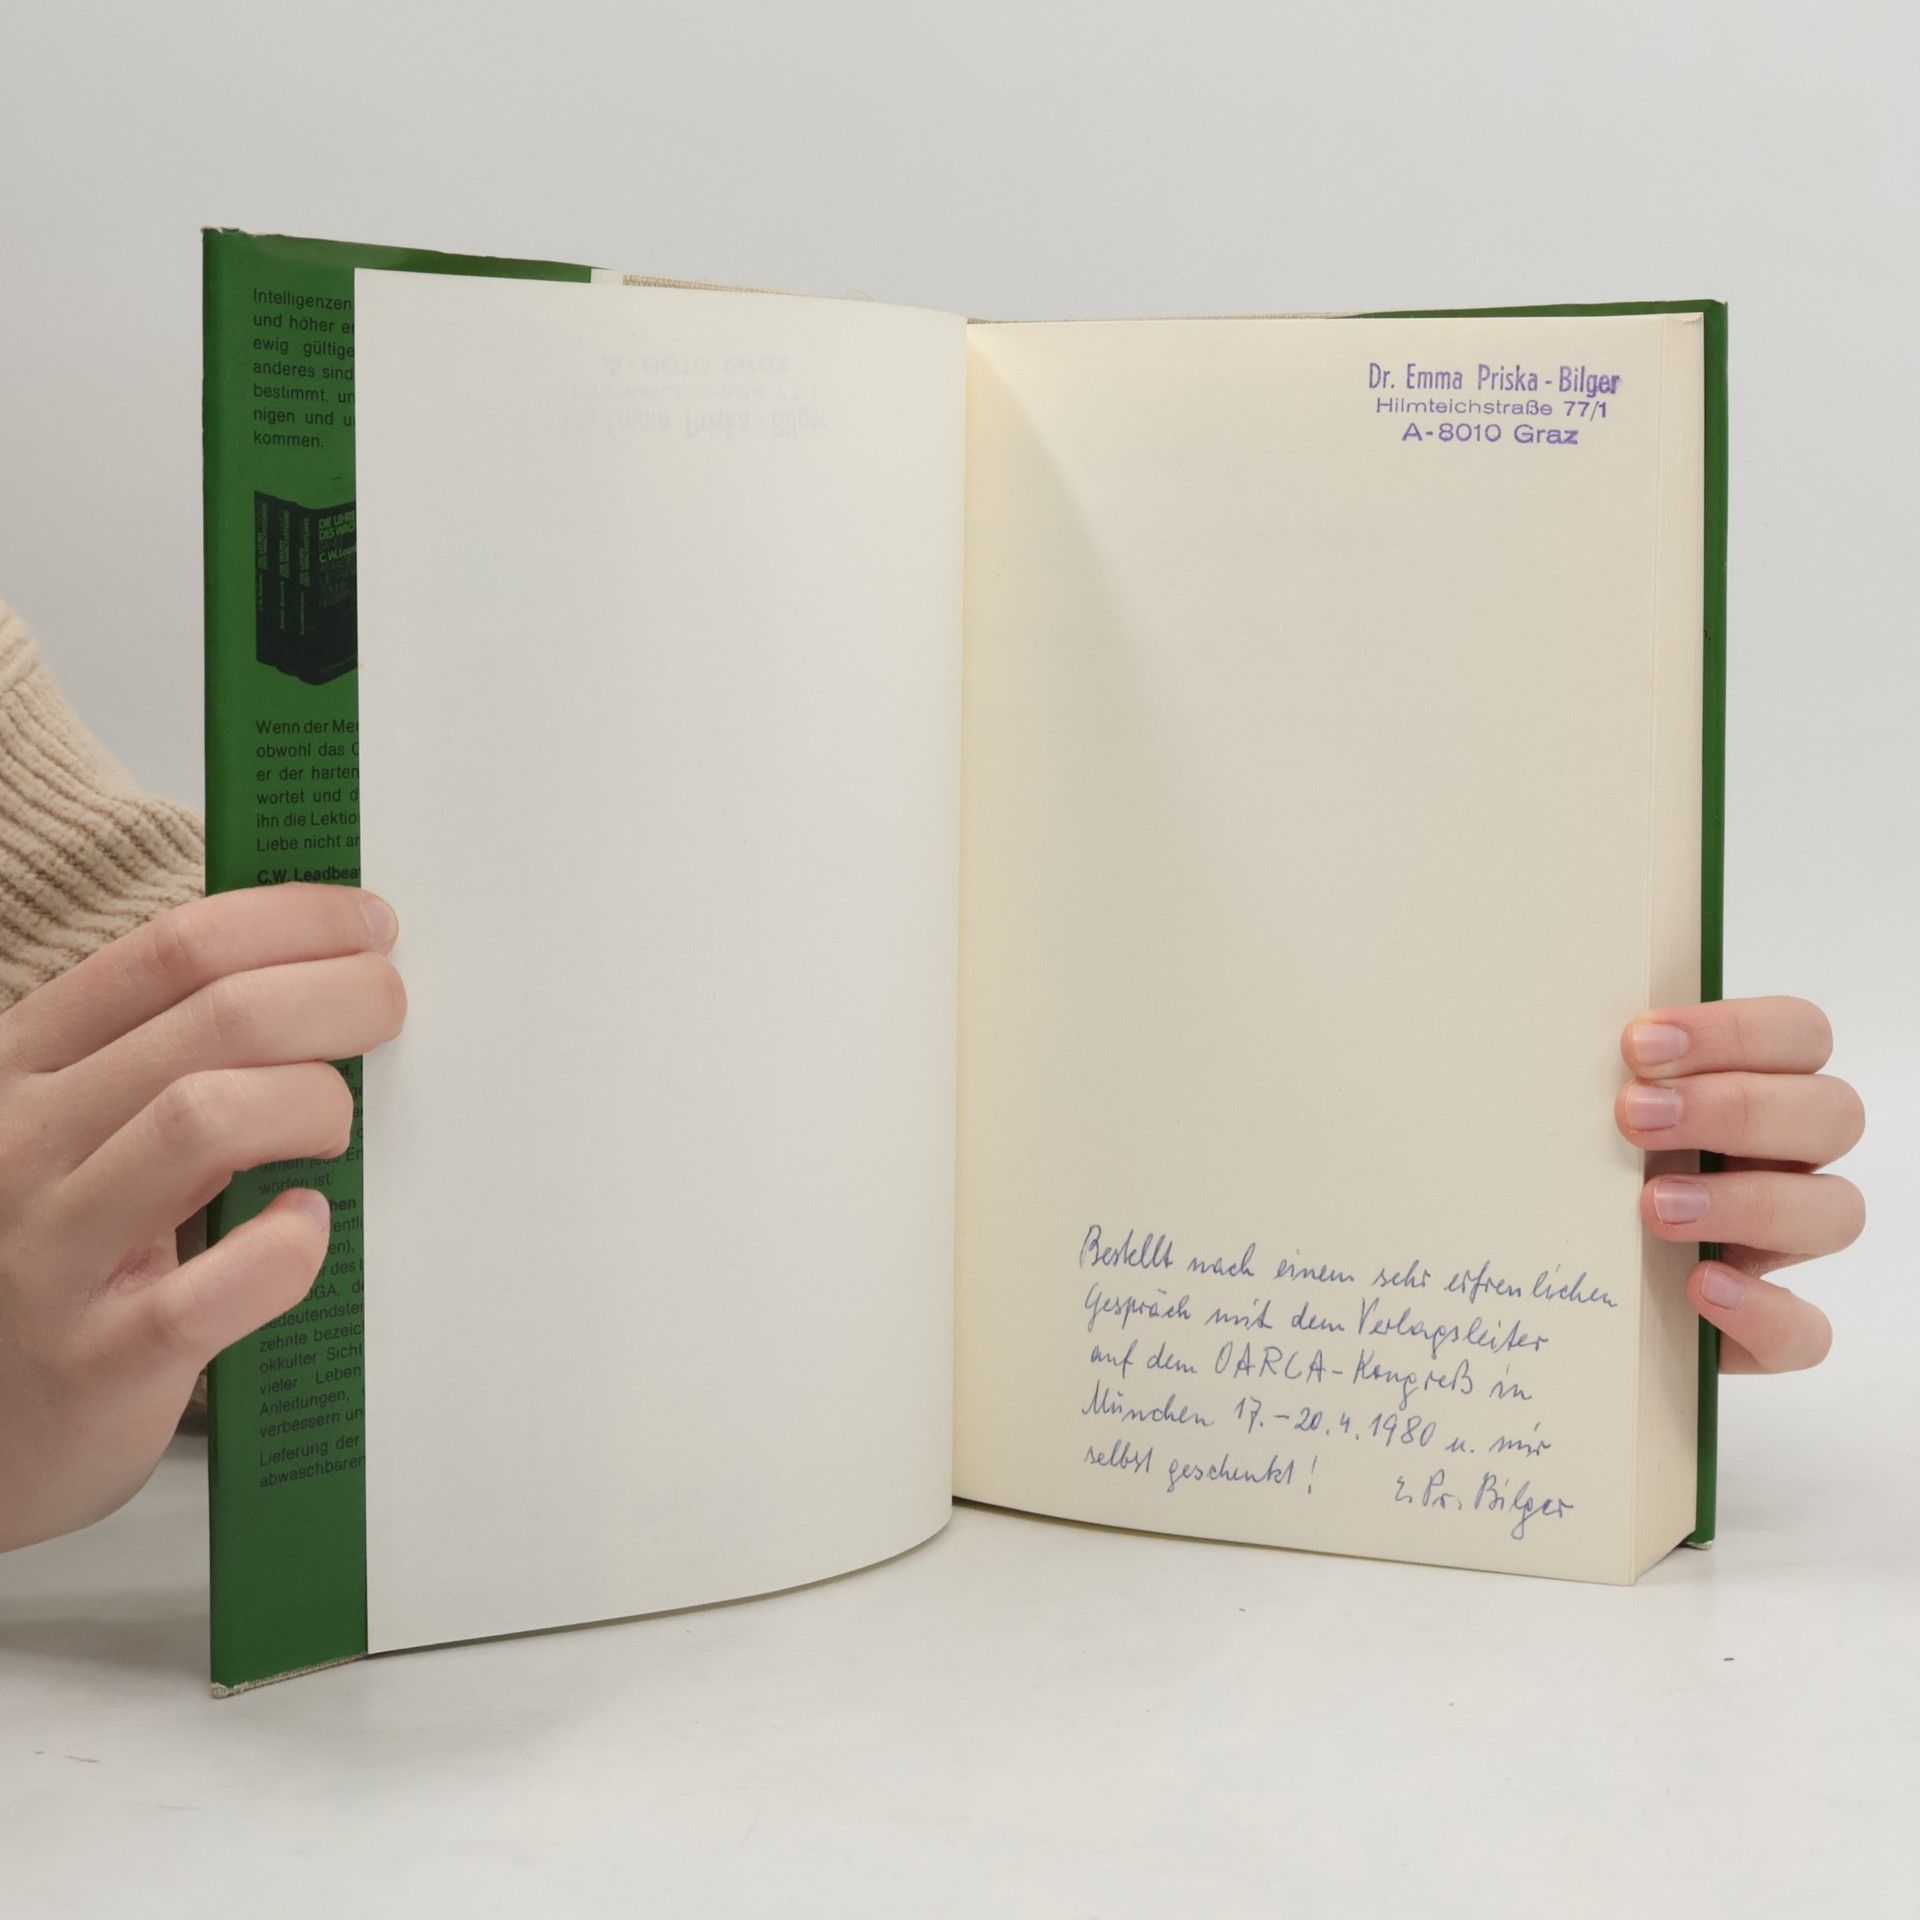 Intelligenzen
und höher
ewig gültige
anderes sind
bestimmt,
nigen und
kommen.
DIE LEHR
DES WACH
C.W. Lead
Wenn der
obwohl das
er der harten
wortet und
ihn die Lektio
Liebe nicht
C.W. Leadbea
denen jede
worfen ist.
bedeutendsten
zehnte bezeic
okkulter Sicht
vieler Leben
Anleitungen,
verbessern
Lieferung der
abwaschbaren
Dr. Emma Priska-Bilger
Hilmteichstraße 77/1
A-8010 Graz
Bestellt nach einem sehr erfreulichen
Gespräch mit dem Verlagsleiter
auf dem OARCA-Kongreß in
München 17.-20.4.1980 u. mir
selbst geschenkt!
E. Pr. Bilger